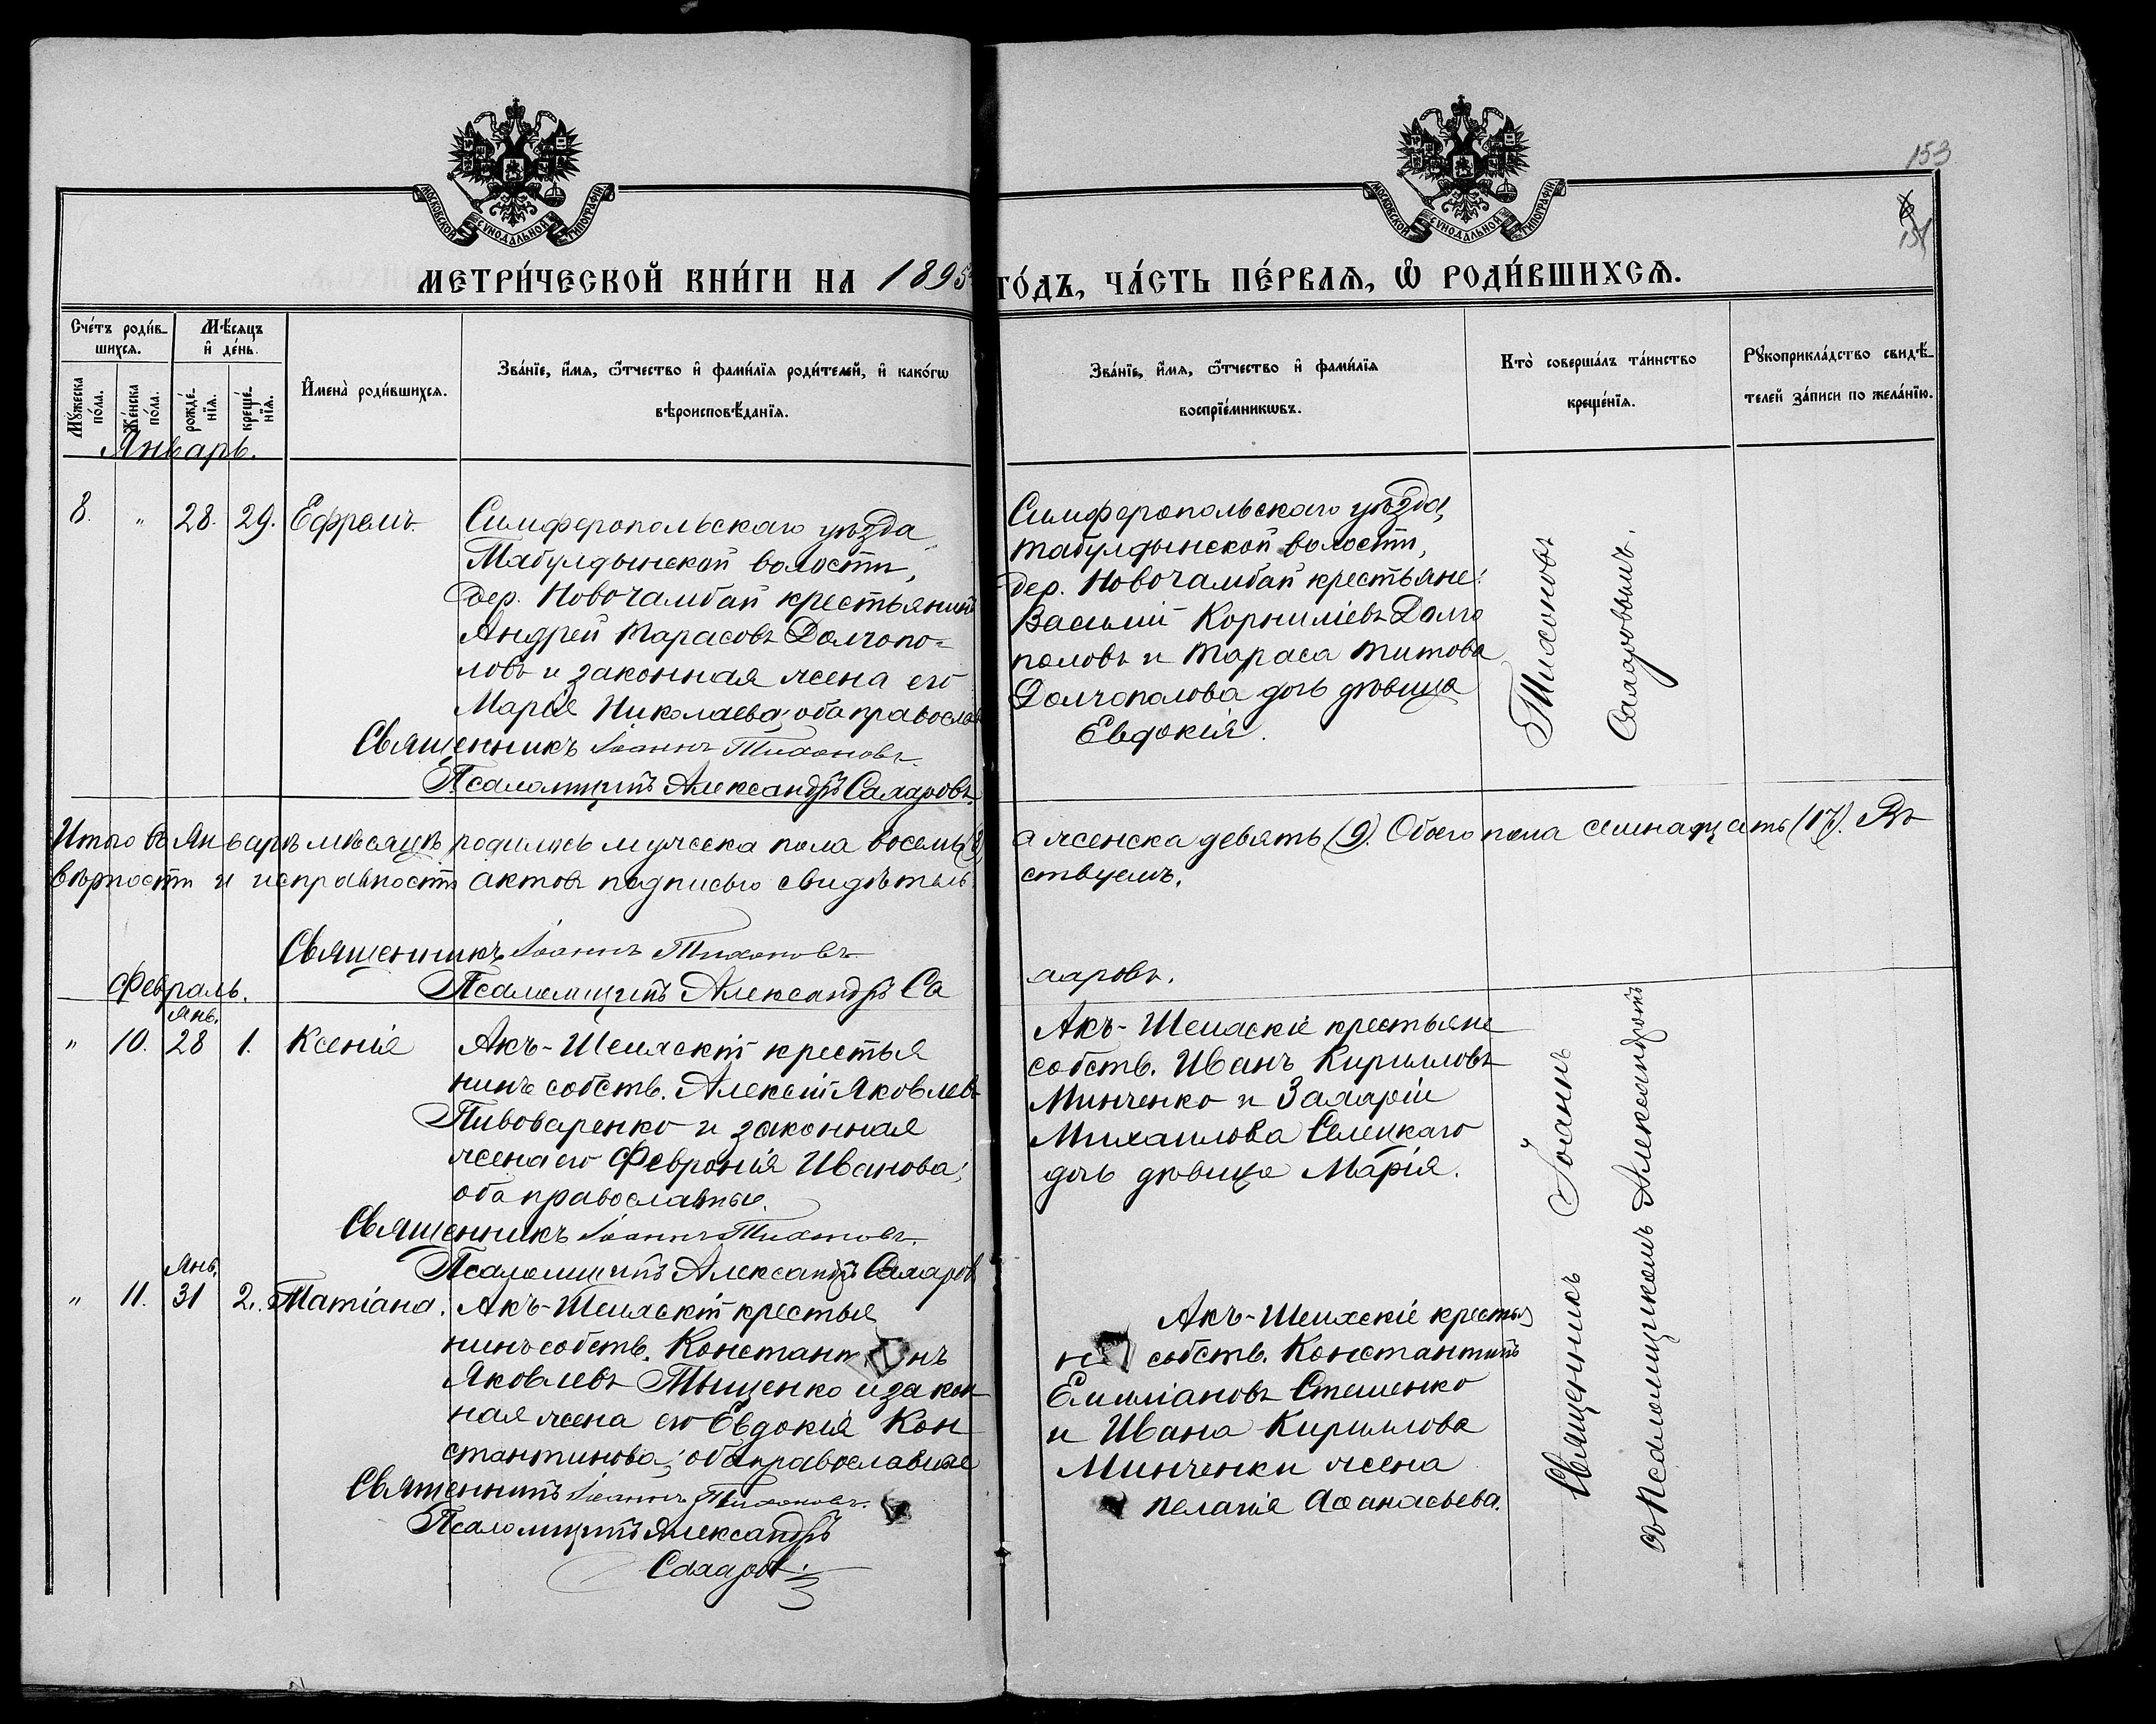 153
151
МОСКОВСКОЙ СѴНОДАЛЬНОЙ ТИПОГРАФІИ.
МОСКОВСКОЙ СѴНОДАЛЬНОЙ ТИПОГРАФІИ.
МЕТРИ́ЧЕСКОЙ КНИ́ГИ НА 1895 ГО́ДЪ, ЧА́СТЬ ПЕ́РВАѦ, Ѡ҆ РОДИ́ВШИХСѦ.
Сче́тъ роди́в-
шихсѧ.
Мѣ́сѧцъ
и҆ де́нь.
Мꙋ́жеска
по́ла.
Же́нска
по́ла.
рожде́-
нїѧ.
креще́-
нїѧ.
И҆мена̀ роди́вшихсѧ.
Зва́нїе, и҆́мѧ, ѻ҆́тчество и҆ фами́лїѧ роди́телей, и҆ како́гѡ
вѣроисповѣ́данїѧ.
Зва́нїе, и҆́мѧ, ѻ҆́тчество и҆ фами́лїѧ
воспрїе́мникѡвъ.
Кто̀ соверша́лъ та́инство
креще́нїѧ.
Рꙋкоприкла́дство свидѣ́-
телей за́писи по жела́нїю.
Январь.
8. " 28. 29. Ефремъ
Симферопольскаго уѣзда
Табулдынской волости,
дер. Новочамбай крестьянинъ
Андрей Тарасовъ Долгопо-
ловъ и законная жена его
Марія Николаева; оба православ
Священникъ Іоаннъ Тихоновъ.
Псаломщикъ Александръ Сахаровъ
Симферопольскаго уѣзда,
Табулдынской волости,
дер. Новочамбай крестьяне:
Василій Корниліевъ Долго
половъ и Тараса Титова
Долгополова дочь дѣвица
Евдокія.
Тихоновъ
Сахаровымъ.
Итого въ Январѣ мѣсяцѣ родилось мужеска пола восемь (8) а женска девять (9). Обоего пола семнадцать (17). Въ
вѣрности и исправности актовъ подписью свидѣтель ствуемъ.
Священникъ Іоаннъ Тихоновъ
Псаломщикъ Александръ Са харовъ.
Февраль.
Янв.
" 10. 28 1. Ксенія
Акъ-Шеихскій крестья
нинъ собств. Алексій Яковлевъ
Пивоваренко и законная
жена его Февронія Иванова;
оба православные.
Священникъ Іоаннъ Тихоновъ.
Псаломщикъ Александръ Сахаров
Акъ-Шеихскіе крестьяне
собств. Иванъ Кирилловъ
Минченко и Захарія
Михаилова Селецкаго
дочь дѣвица Марія.
Янв.
" 11. 31 2. Татіана.
Акъ-Шеихскій крестья
нинъ собств. Константинъ
Яковлевъ Тыщенко и закон
ная жена его Евдокія Кон
стантинова; оба православные
Священникъ Іоаннъ Тихоновъ.
Псаломщикъ Александръ
Сахаровъ
Акъ-Шеихскіе крестья
не собств. Константинъ
Емиліановъ Стешенко
и Ивана Кириллова
Минченки жена
Пелагія Аѳанасьева.
Священникъ Іоаннъ
съ Псаломщикомъ Александромъ